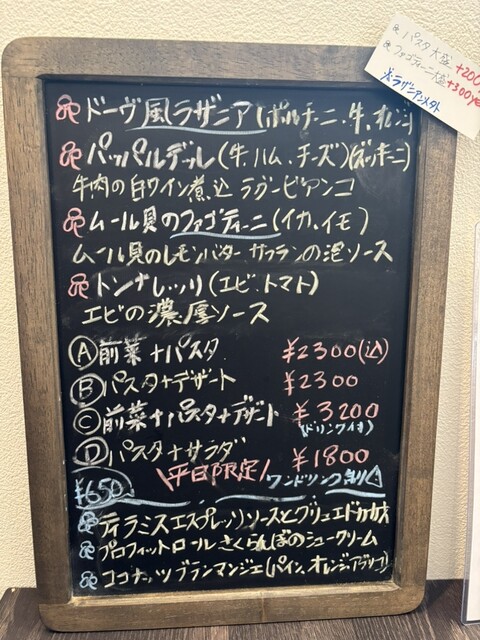 パスタ大盛 +200
ファゴティーニ大盛 +300
ドーヴ風ラザニア(ポルチーニ、牛、オレンジ)
パッパルデッレ(牛、ハム、チーズ)(ズッキーニ)
牛肉の白ワイン煮込 ラグービアンコ
ムール貝のファゴティーニ(イカ、イモ)
ムール貝のレモンバター サフランの泡ソース
トンナレッリ(エビ、トマト)
エビの濃厚ソース
Ⓐ前菜+パスタ ¥2300(込)
Ⓑパスタ+デザート ¥2300
Ⓒ前菜+パスタ+デザート ¥3200
(ドリンク付き)
Ⓓパスタ+サラダ ¥1800
\平日限定/ ワンドリンク制
¥650
ティラミスエスプレッソソースとグリュエドカカオ
プロフィットロール さくらんぼのシュークリーム
ココナッツブランマンジェ(パイン、オレンジ